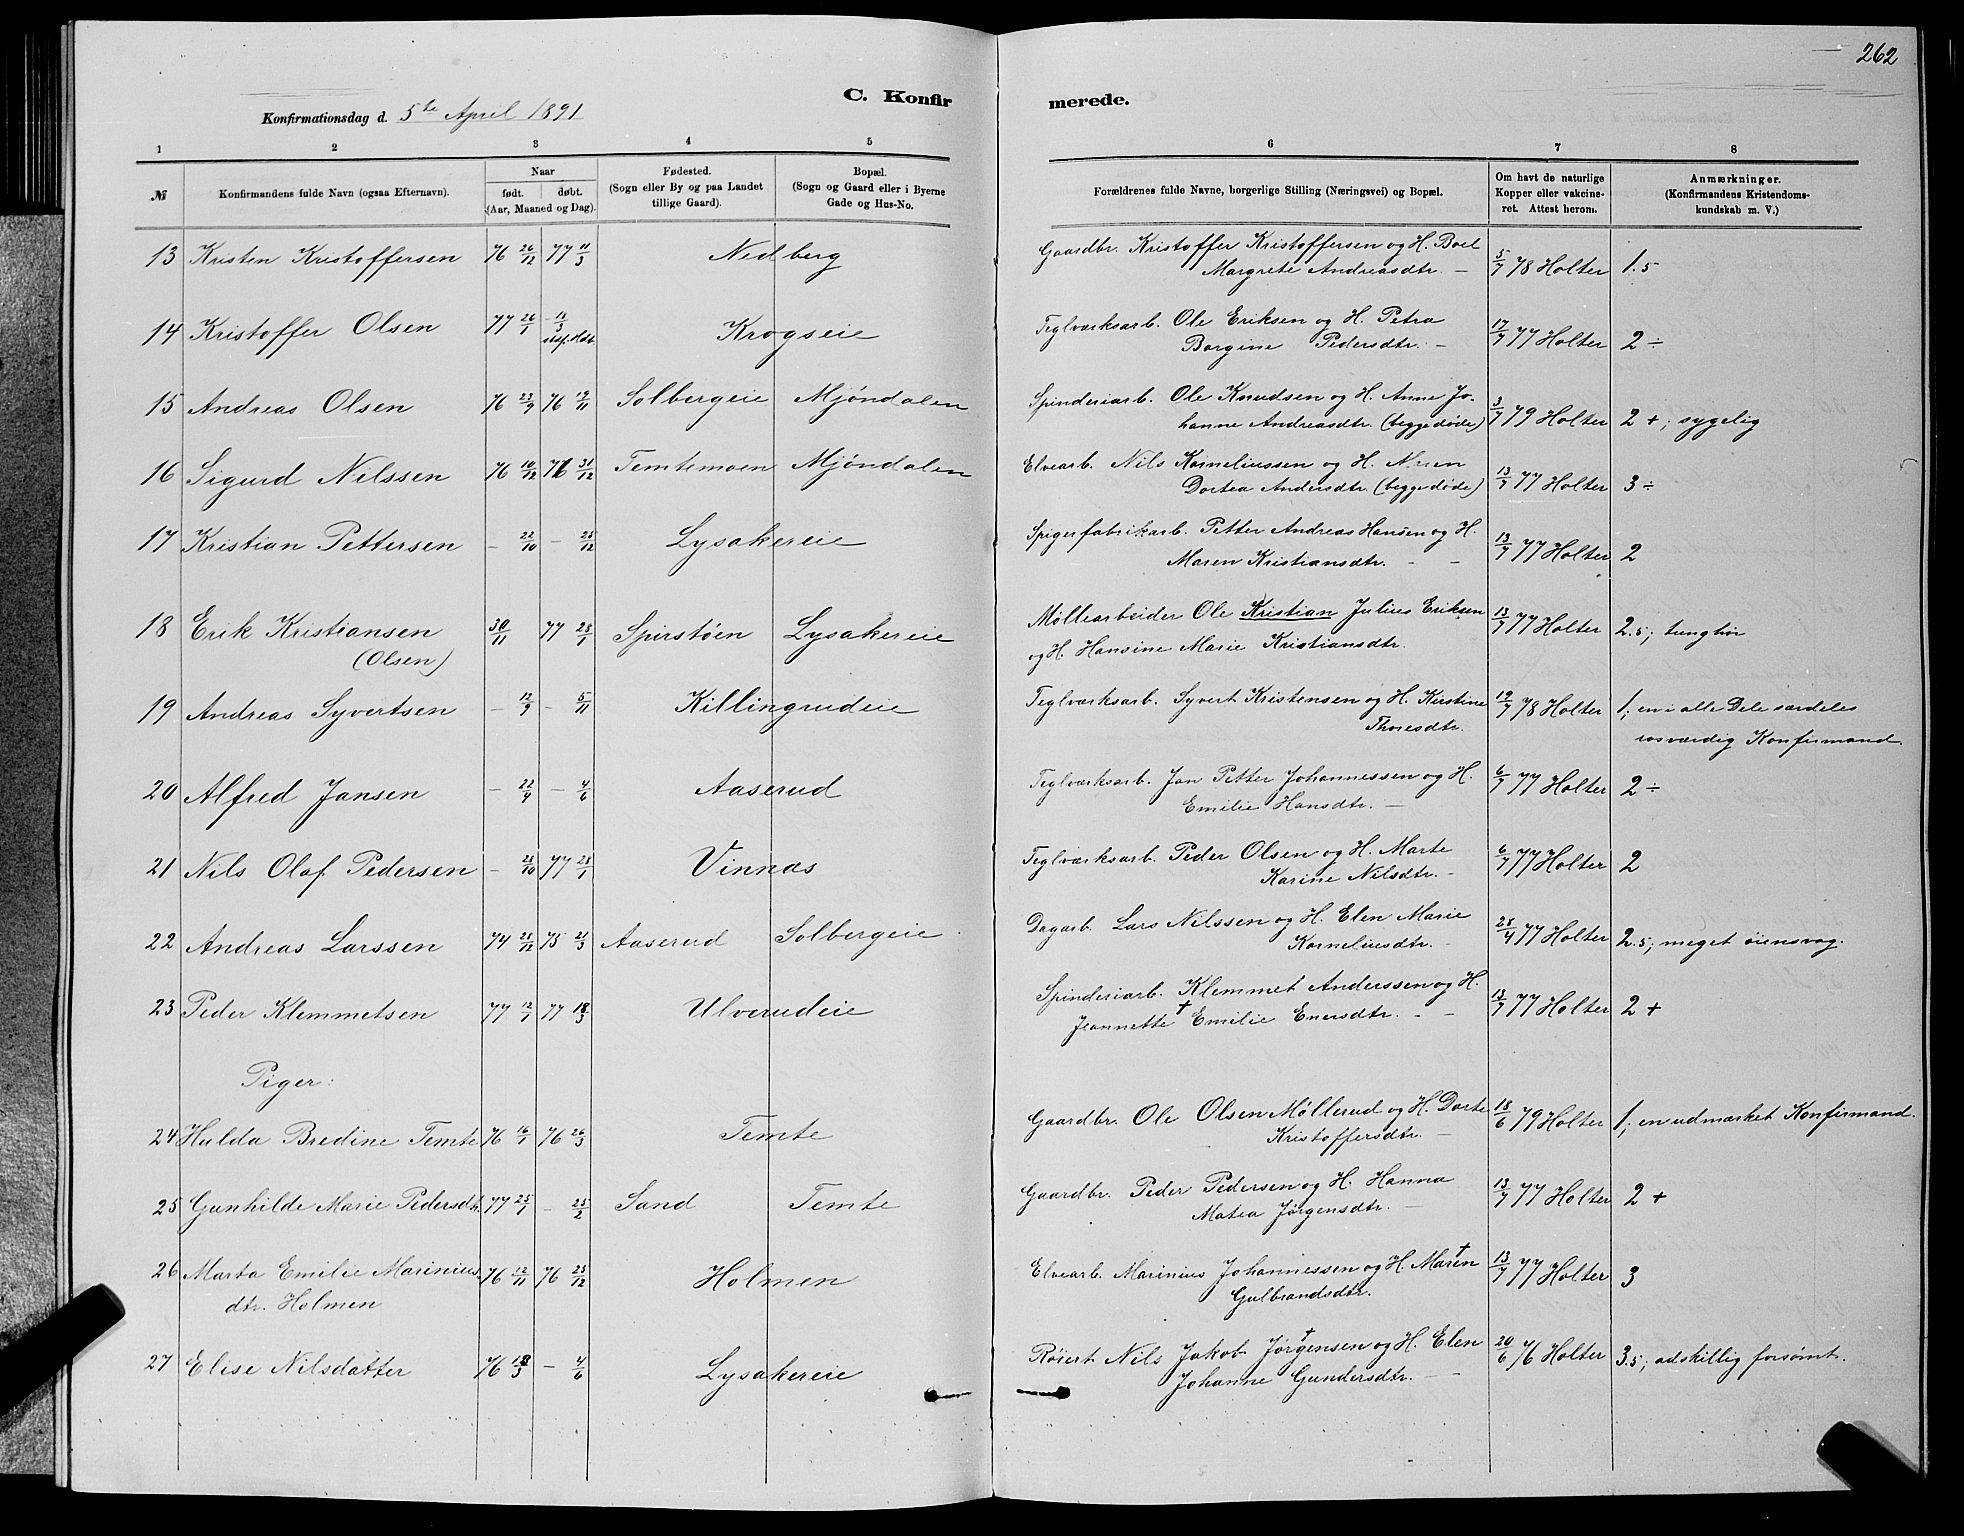 262
C. Konfirmerede.
Konfirmationsdag d. 5te April 1891
1 2 3 4 5 6 7 8
№ | Konfirmandens fulde Navn (ogsaa Efternavn). | Naar født. døbt. (Aar, Maaned og Dag). | Fødested. (Sogn eller By og paa Landet tillige Gaard). | Bopæl. (Sogn og Gaard eller i Byerne Gade og Hus-No. | Forældrenes fulde Navne, borgerlige Stilling (Næringsvei) og Bopæl. | Om havt de naturlige Kopper eller vakcineret. Attest herom. | Anmærkninger. (Konfirmandens Kristendomskundskab m. V.)
13 Kristen Kristoffersen 76 26/12 77 11/3 Nedberg Gaardbr. Kristoffer Kristoffersen og H. Boel 5/7 78 Holter 1.5
Margrete Andreasdtr. —
14 Kristoffer Olsen 77 26/1 - 11/3 Krogseie Teglværksarb. Ole Eriksen og H. Petra 17/7 77 Holter 2 ÷
Borgine Pedersdtr. -
15 Andreas Olsen 76 23/9 76 19/11 Solbergeie Mjøndalen Spinderiarb. Ole Knudsen og H. Anne Jo- 3/7 79 Holter 2 +; sygelig
hanne Andreasdtr. (begge døde)
16 Sigurd Nilssen 76 10/12 76 31/12 Temtemoen Mjøndalen Elvearb. Nils Korneliussen og H. Maren 13/7 77 Holter 3 ÷
Dortea Andersdtr. (begge døde)
17 Kristian Pettersen - 22/10 - 25/12 Lysakereie Spigerfabrikarb. Petter Andreas Hansen og H. 13/7 77 Holter 2
Maren Kristiansdtr. - -
18 Erik Kristiansen 30/11 77 28/1 Spirstøen Lysakereie Møllearbeider Ole Kristian Julius Eriksen 13/7 77 Holter 2.5; tunghør
(Olsen) og H. Hansine Marie Kristiansdtr.
19 Andreas Syvertsen - 12/9 - 5/11 Killingrudeie Teglværksarb. Syvert Kristensen og H. Kirstine 19/7 78 Holter 1; en i alle Dele særdeles
Thoresdtr. rosværdig Konfirmand.
20 Alfred Jansen - 22/4 - 4/6 Aaserud Teglværksarb. Jan Petter Johannessen og H. 6/7 77 Holter 2 ÷
Emilie Hansdtr. —
21 Nils Olaf Pedersen - 28/10 77 28/1 Vinnæs Teglværksarb. Peder Olsen og H. Marte 6/7 77 Holter 2
Karine Nilsdtr. -
22 Andreas Larssen 74 28/12 75 21/3 Aaserud Solbergeie Dagarb. Lars Nilssen og H. Elen Marie 28/4 77 Holter 2.5; meget øiensvag.
Korneliusdtr. -
23 Peder Klemmetsen 77 12/1 77 18/3 Ulverudeie Spinderiarb. Klemmet Anderssen og H. 13/7 77 Holter 2 +
Jeannette † Emilie Enersdtr. - -
Piger:
24 Hulda Bredine Temte 76 16/1 76 26/3 Temte Gaardbr. Ole Olsen Møllerud og H. Dorte 18/6 79 Holter 1; en udmærket Konfirmand.
Kristoffersdtr. -
25 Gunhilde Marie Pedersdtr. 77 25/1 - 25/2 Sand Temte Gaardbr. Peder Pedersen og H. Hanna 13/7 77 Holter 2 +
Matea Jørgensdtr. -
26 Marta Emilie Marinius- 76 12/11 76 25/12 Holmen Elvearb. Marinius Johannessen og H. Maren † 13/7 77 Holter 3
dtr. Holmen Gulbrandsdtr.
27 Elise Nilsdatter 76 18/3 - 4/6 Lysakereie Røiert Nils Jakob Jørgensen † og H. Elen 20/6 76 Holter 3.5; adskillig forsømt.
Johanne Gundersdtr. - -